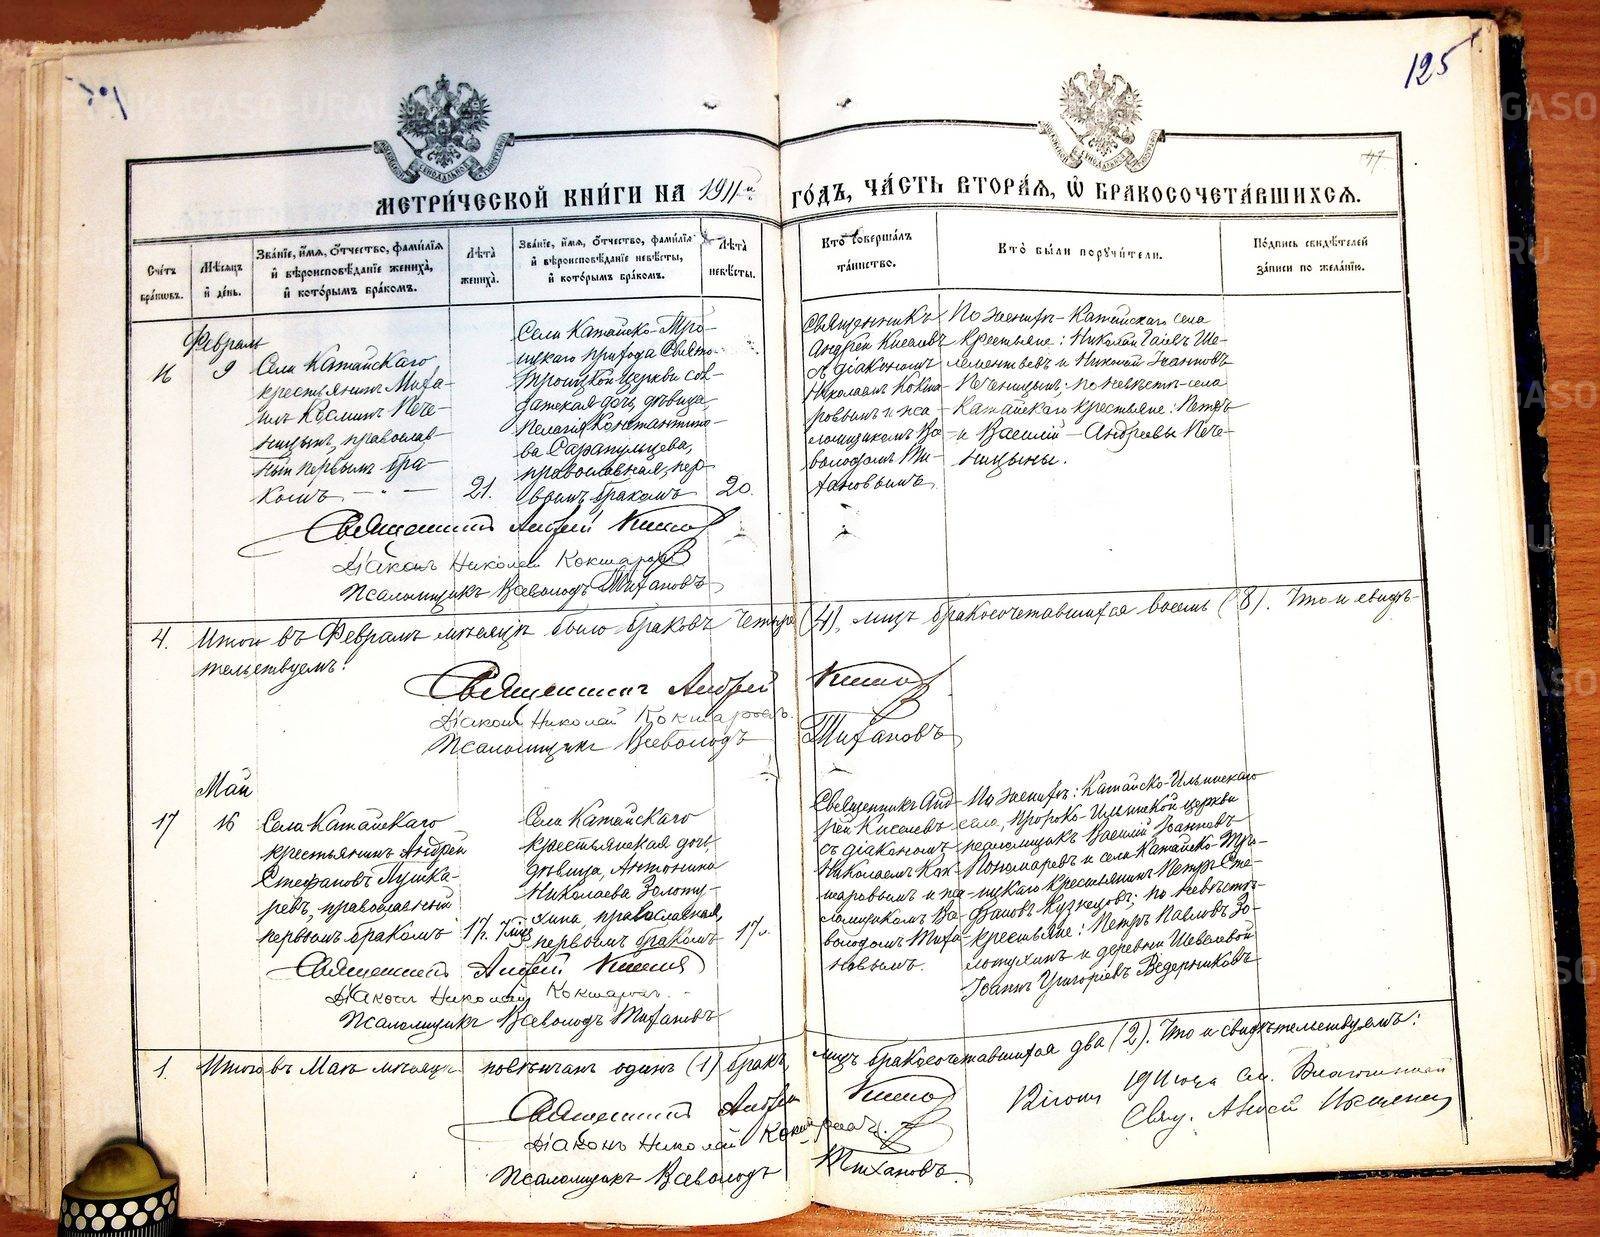 125
МЕТРИ́ЧЕСКОЙ КНИ́ГИ НА 1911й ГО́ДЪ, ЧА́СТЬ ВТОРА́Я, Ѡ БРАКОСОЧЕТА́ВШИХСЯ.
Сче́тъ бра́ковъ.
Мѣ́сяцъ и де́нь.
Зва́нїе, и́мя, о́тчество, фами́лїя и вѣроисповѣ́данїе жениха́, и кото́рымъ бра́комъ.
Лѣта̀ жениха̀.
Зва́нїе, и́мя, о́тчество, фами́лїя и вѣроисповѣ́данїе невѣ́сты, и кото́рымъ бра́комъ.
Лѣта̀ невѣ́сты.
Кто̀ соверша́лъ та́инство.
Кто̀ бы́ли поручи́тели.
По́дпись свидѣ́телей за́писи по жела́нїю.
Февраль
16
9
Села Катайскаго
крестьянинъ Миха-
илъ Косминъ Пече-
ницынъ, православ-
ный первымъ бра-
комъ
21.
Села Катайско-Тро-
ицкаго прихода Свято-
Троицкой церкви сол-
датская дочь, дѣвица,
Пелагія Константино-
ва Сарапульцева,
православная, пер-
вымъ бракомъ
20.
Священникъ
Андрей Киселевъ
съ діакономъ
Николаемъ Кокша-
ровымъ и пса-
ломщикомъ Все-
володомъ Ти-
хановымъ
По женихѣ - Катайскаго села
крестьяне: Николай
и Николай Іоанновъ
Печеницынъ; по невѣстѣ - села
Катайскаго крестьяне: Петръ
и Василій - Андреевы Пече-
ницыны.
Священникъ Андрей Киселевъ
Діаконъ Николай Кокшаровъ
Псаломщикъ Всеволодъ Тихановъ
4. Итого въ Февралѣ мѣсяцѣ было браковъ четыре (4), лицъ бракосочетавшихся восемь (8). Что и свидѣ-
тельствуемъ:
Священникъ Андрей Киселевъ
Діаконъ Николай Кокшаровъ.
Псаломщикъ Всеволодъ Тихановъ
Май
17
16
Села Катайскаго
крестьянинъ Андрей
Стефановъ Пушка-
ревъ, православный
первымъ бракомъ
17л. 7 мѣс.
Села Катайскаго
крестьянская дочь,
дѣвица, Антонина
Николаева Золоту-
хина, православная,
первымъ бракомъ
17л.
Священникъ Анд-
рей Киселевъ
съ діакономъ
Николаемъ Кок-
шаровымъ и пса-
ломщикомъ Все-
володомъ Тиха-
новымъ.
По женихѣ: Катайско-Ильинскаго
села, Пророко-Ильинской церкви
псаломщикъ Василій Іоанновъ
Пономаревъ и села Катайско-Тро-
ицкаго крестьянинъ Петръ Сте-
фановъ Кузнецовъ; по невѣстѣ-
крестьяне: Петръ Павловъ Зо-
лотухинъ и деревни Шевелевой
Іоаннъ Григоріевъ Ведерниковъ
Священникъ Андрей Киселевъ
Діаконъ Николай Кокшаровъ.
Псаломщикъ Всеволодъ Тихановъ
1. Итого въ Маѣ мѣсяцѣ повѣнчанъ одинъ (1) бракъ, лицъ бракосочетавшихся два (2). Что и свидѣтельствуемъ:
Священникъ Андрей Киселевъ
Діаконъ Николай Кокшаровъ.
Псаломщикъ Всеволодъ Тихановъ.
1911 года
Благочинный
Свящ.